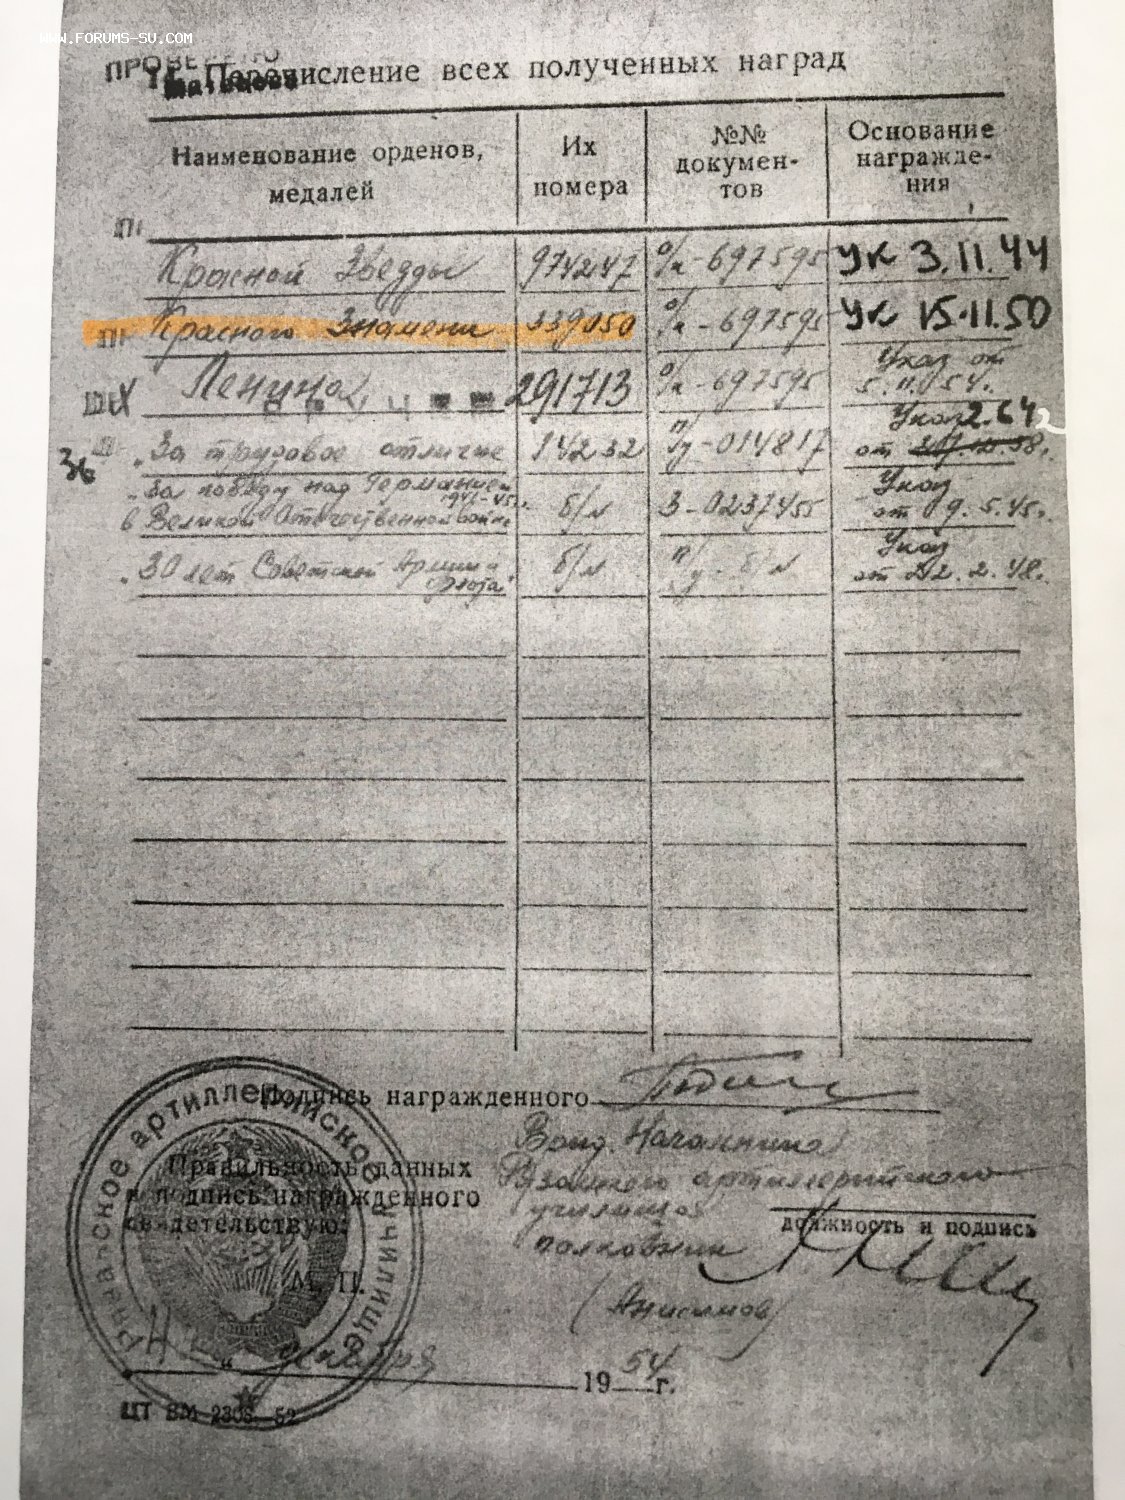 WWW.FORUMS-SU.COM
ПРОВЕРЕНО
Перечисление всех полученных наград
Наименование орденов, медалей
Их номера
№№ документов
Основание награждения
Красной Звезды 974247 о/к-697595 УК 3.11.44
Красного Знамени 339050 о/к-697595 УК 15.11.50
Ленина 291713 о/к-697595 Указ от 5.11.54.
"За трудовое отличие 14232 п/у-014817 Указ 2.64 от
"За победу над Германией 1941-45г. в Великой Отечественной войне б/н З-0237455 Указ от 9.5.45г.
"30 лет Советской Армии и Флота" б/н п/у-б/н Указ от 22.2.48.
Подпись награжденного
Врид. Начальника
Рязанского артиллерийского
училища
полковник
(Анисимов)
должность и подпись
Правильность данных
и подпись награжденного
свидетельствую:
М. П.
Рязанское артиллерийское училище
декабря 1954 г.
ЦТ ВМ 2308—52